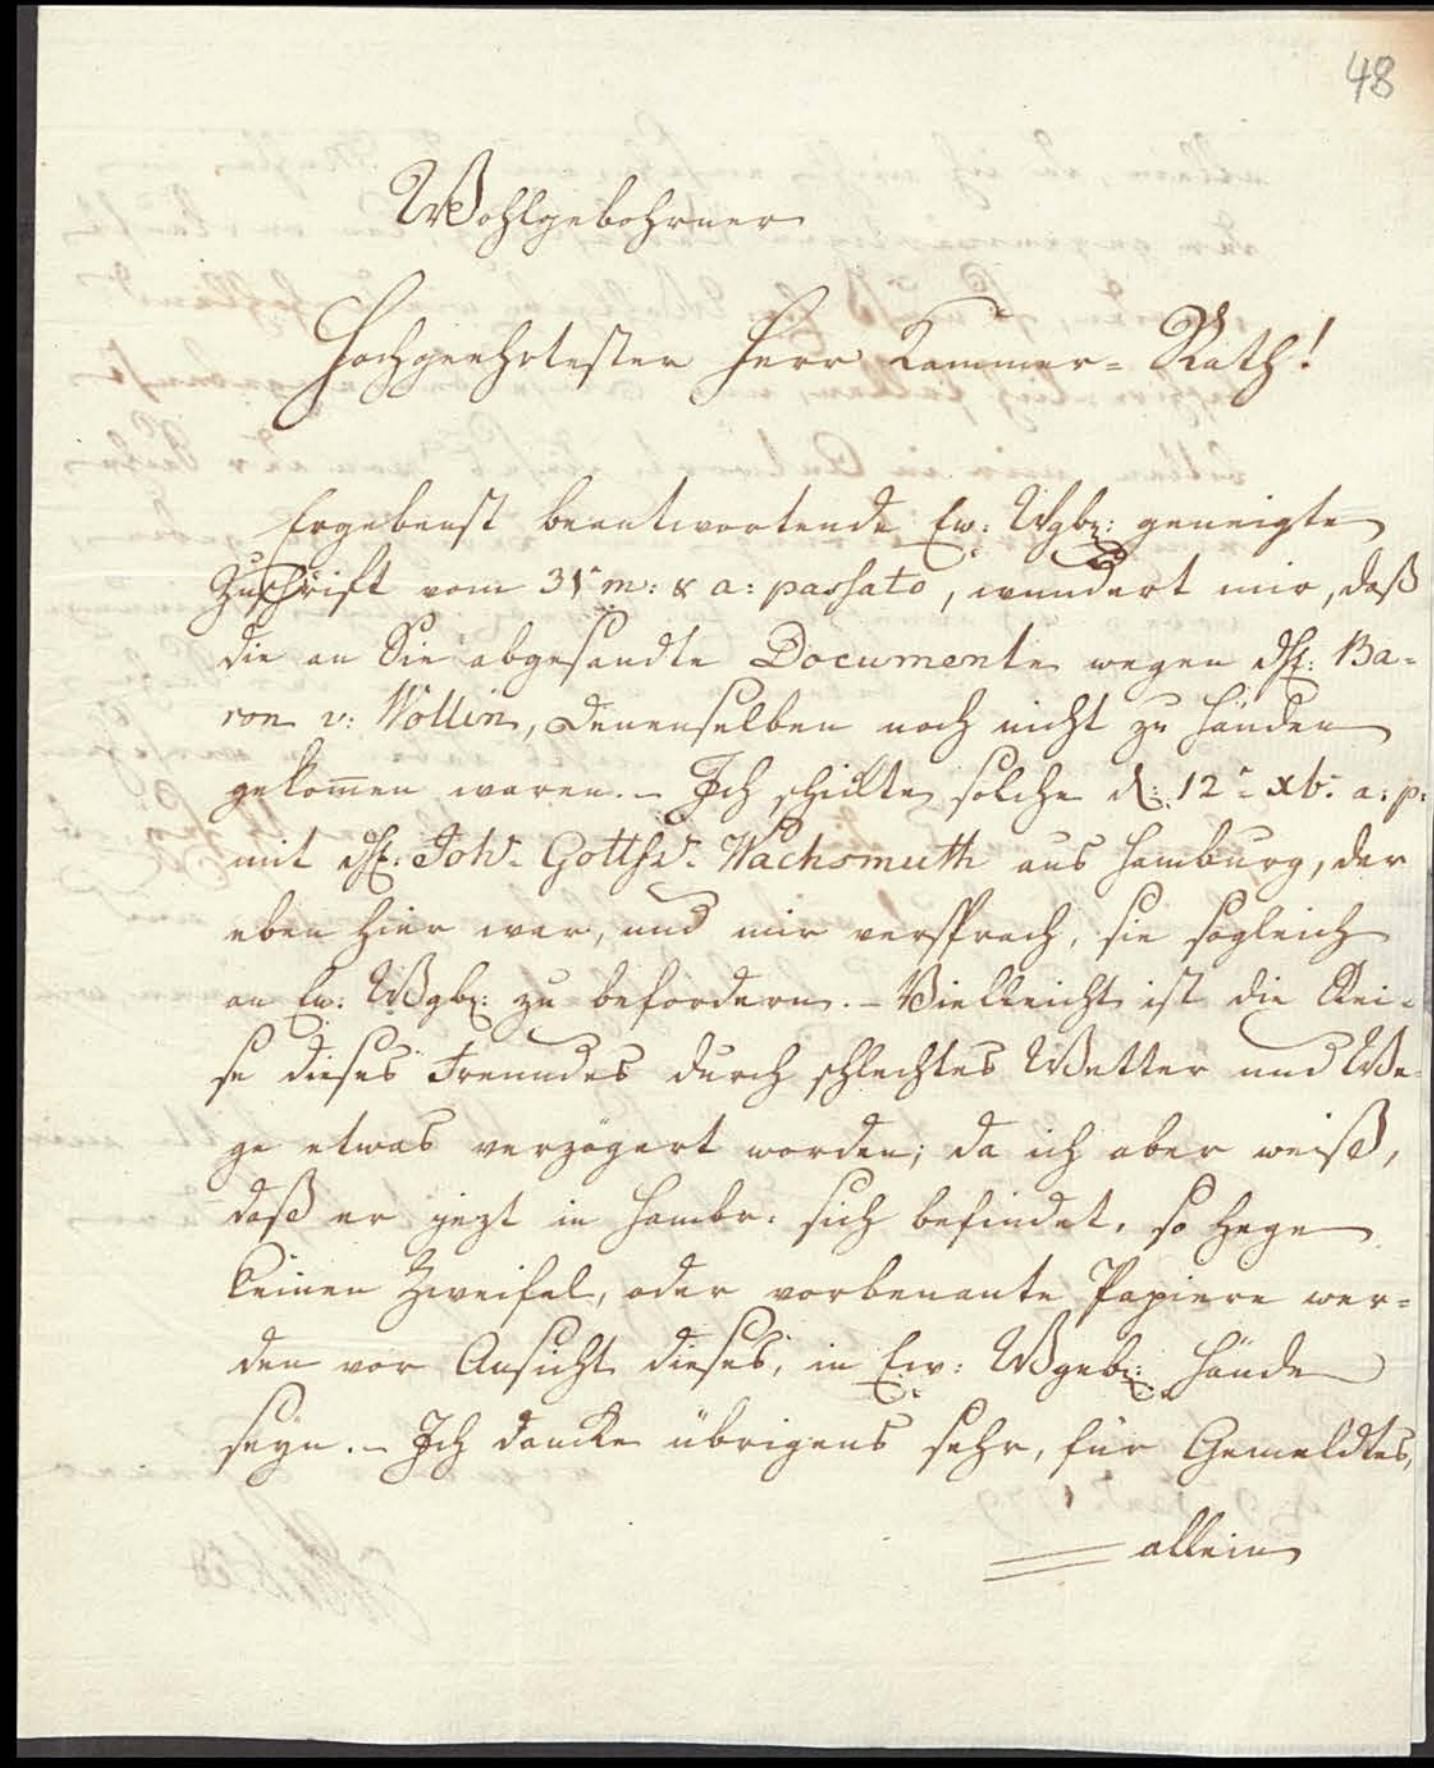 48
Wohlgebohrner
Hochgeehrtester Herr Kammer= Rath!
Ergebenst beantwortende Ew: Wgb: geneigte
Zuschrift vom 31 m: & a: passato, wundert mir, daß
die an Sie abgesandte Documente wegen H: Ba=
ron v: Wollin, Denenselben noch nicht zu Händen
gekom̄en waren. – Ich schickte solche d: 12 xb: a: p:
mit H: Joh. Wachsmuth aus Hamburg, der
eben hier war, und mir versprach, sie sogleich
an Ew: Wgb: zu befordern. – Vielleicht ist die Rei=
se dieses Freundes durch schlechtes Wetter und We=
ge etwas verzögert worden; da ich aber weiß,
daß er jezt in Hambr: sich befindet, so hege
keinen Zweifel, oder vorbenante Papiere wer=
den vor Ansicht dieses, in Ew: Wgeb: Hände
seyn. – Ich dancke übrigens sehr, für Gemeldtes,
allein